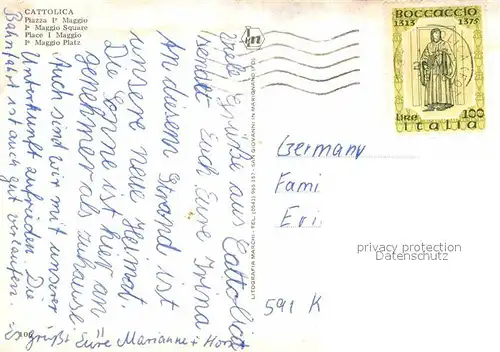 CATTOLICA
Piazza Iº Maggio
Iº Maggio Square
Place I Maggio
Iº Maggio Platz
BOCCACCIO
1313 1375
LIRE 100
Italia
Viele Grüße aus Cattolica
sendet Euch Eure Irina
An diesem Strand ist
unsere neue Heimat.
Die Sonne ist hier an
genehmer als zuhause
Auch sind wir mit unserer
Unterkunft zufrieden. Die
Bahnfahrt ist auch gut verlaufen.
Es grüßt Eure Marianne + Horst
LITOGRAFIA MARCHI - TEL. (0541) SAN GIOVANNI IN MARIGNANO (FO)
Germany
Fami
Eri
privacy protection
Datenschutz
591 K